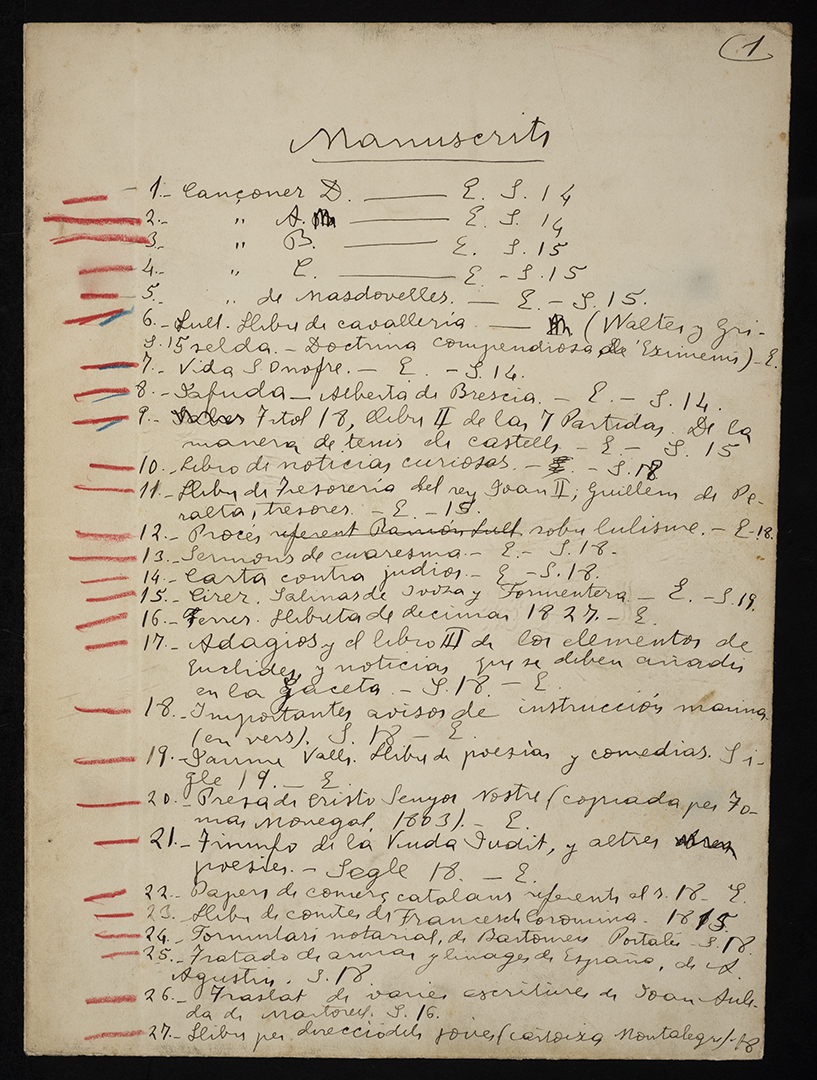 1
Manuscrits
1.- Cançoner D. — E. S. 14
2.- " A. — E. S. 14
3.- " B. — E. S. 15
4.- " C. — E - S. 15
5.- " de Masdovelles. — E. - S. 15.
6.- Lull. Llibre de cavalleria. — (Walter y Gri-
S. 15 selda. - Doctrina compendiosa, de Eximenis) - E.
7.- Vida S. Onofre. - E. - S. 14.
8.- Jafuda - Alberta de Brescia. - E. - S. 14.
9.- Titol 18, llibre II de las 7 Partidas. De la
manera de tenir els castells - E - S. 15
10.- Libro de noticias curiosas. - E. - S. 18
11.- Llibre de Tresoreria del rey Joan II; Guillem de Pe-
ralta, tresorer. - E - 15.
12.- Procés referent Ramón Lull sobre lulisme. - E - 18.
13.- Sermons de cuaresma. - E - S. 18.
14.- Carta contra judios. - E - S. 18.
15.- Cirer. Salinas de Iviza y Formentera - E. - S. 19.
16.- Ferrer. Llibreta de decimas 1827. - E.
17.- Adagios y el libro III de los elementos de
Euclides y noticias que se deben añadir
en la Gaceta. - S. 18 - E.
18.- Importantes avisos de instrucción marina
(en vers). S. 18 - E.
19.- Jaume Valls. Llibre de poesias y comedias. Si-
gle 19. - E.
20.- Presa de Cristo Senyor Nostre (copiada per To-
mas Monegal, 1803). - E.
21.- Triunfo de la Viuda Judit, y altres
poesies. - Segle 18. - E.
22.- Papers de comerç catalans referents al s. 18 - E.
23.- Llibre de comtes de Francesch Coromina. 1815.
24.- Formulari notarial, de Bartomeu Portalé - S. 18.
25.- Tratado de armas y linages de España, de A.
Agustin. S. 18.
26.- Traslat de varies escritures de Joan
de Martorell. S. 16.
27.- Llibre per direcció dels joves (cartoixa Montalegre) - 18